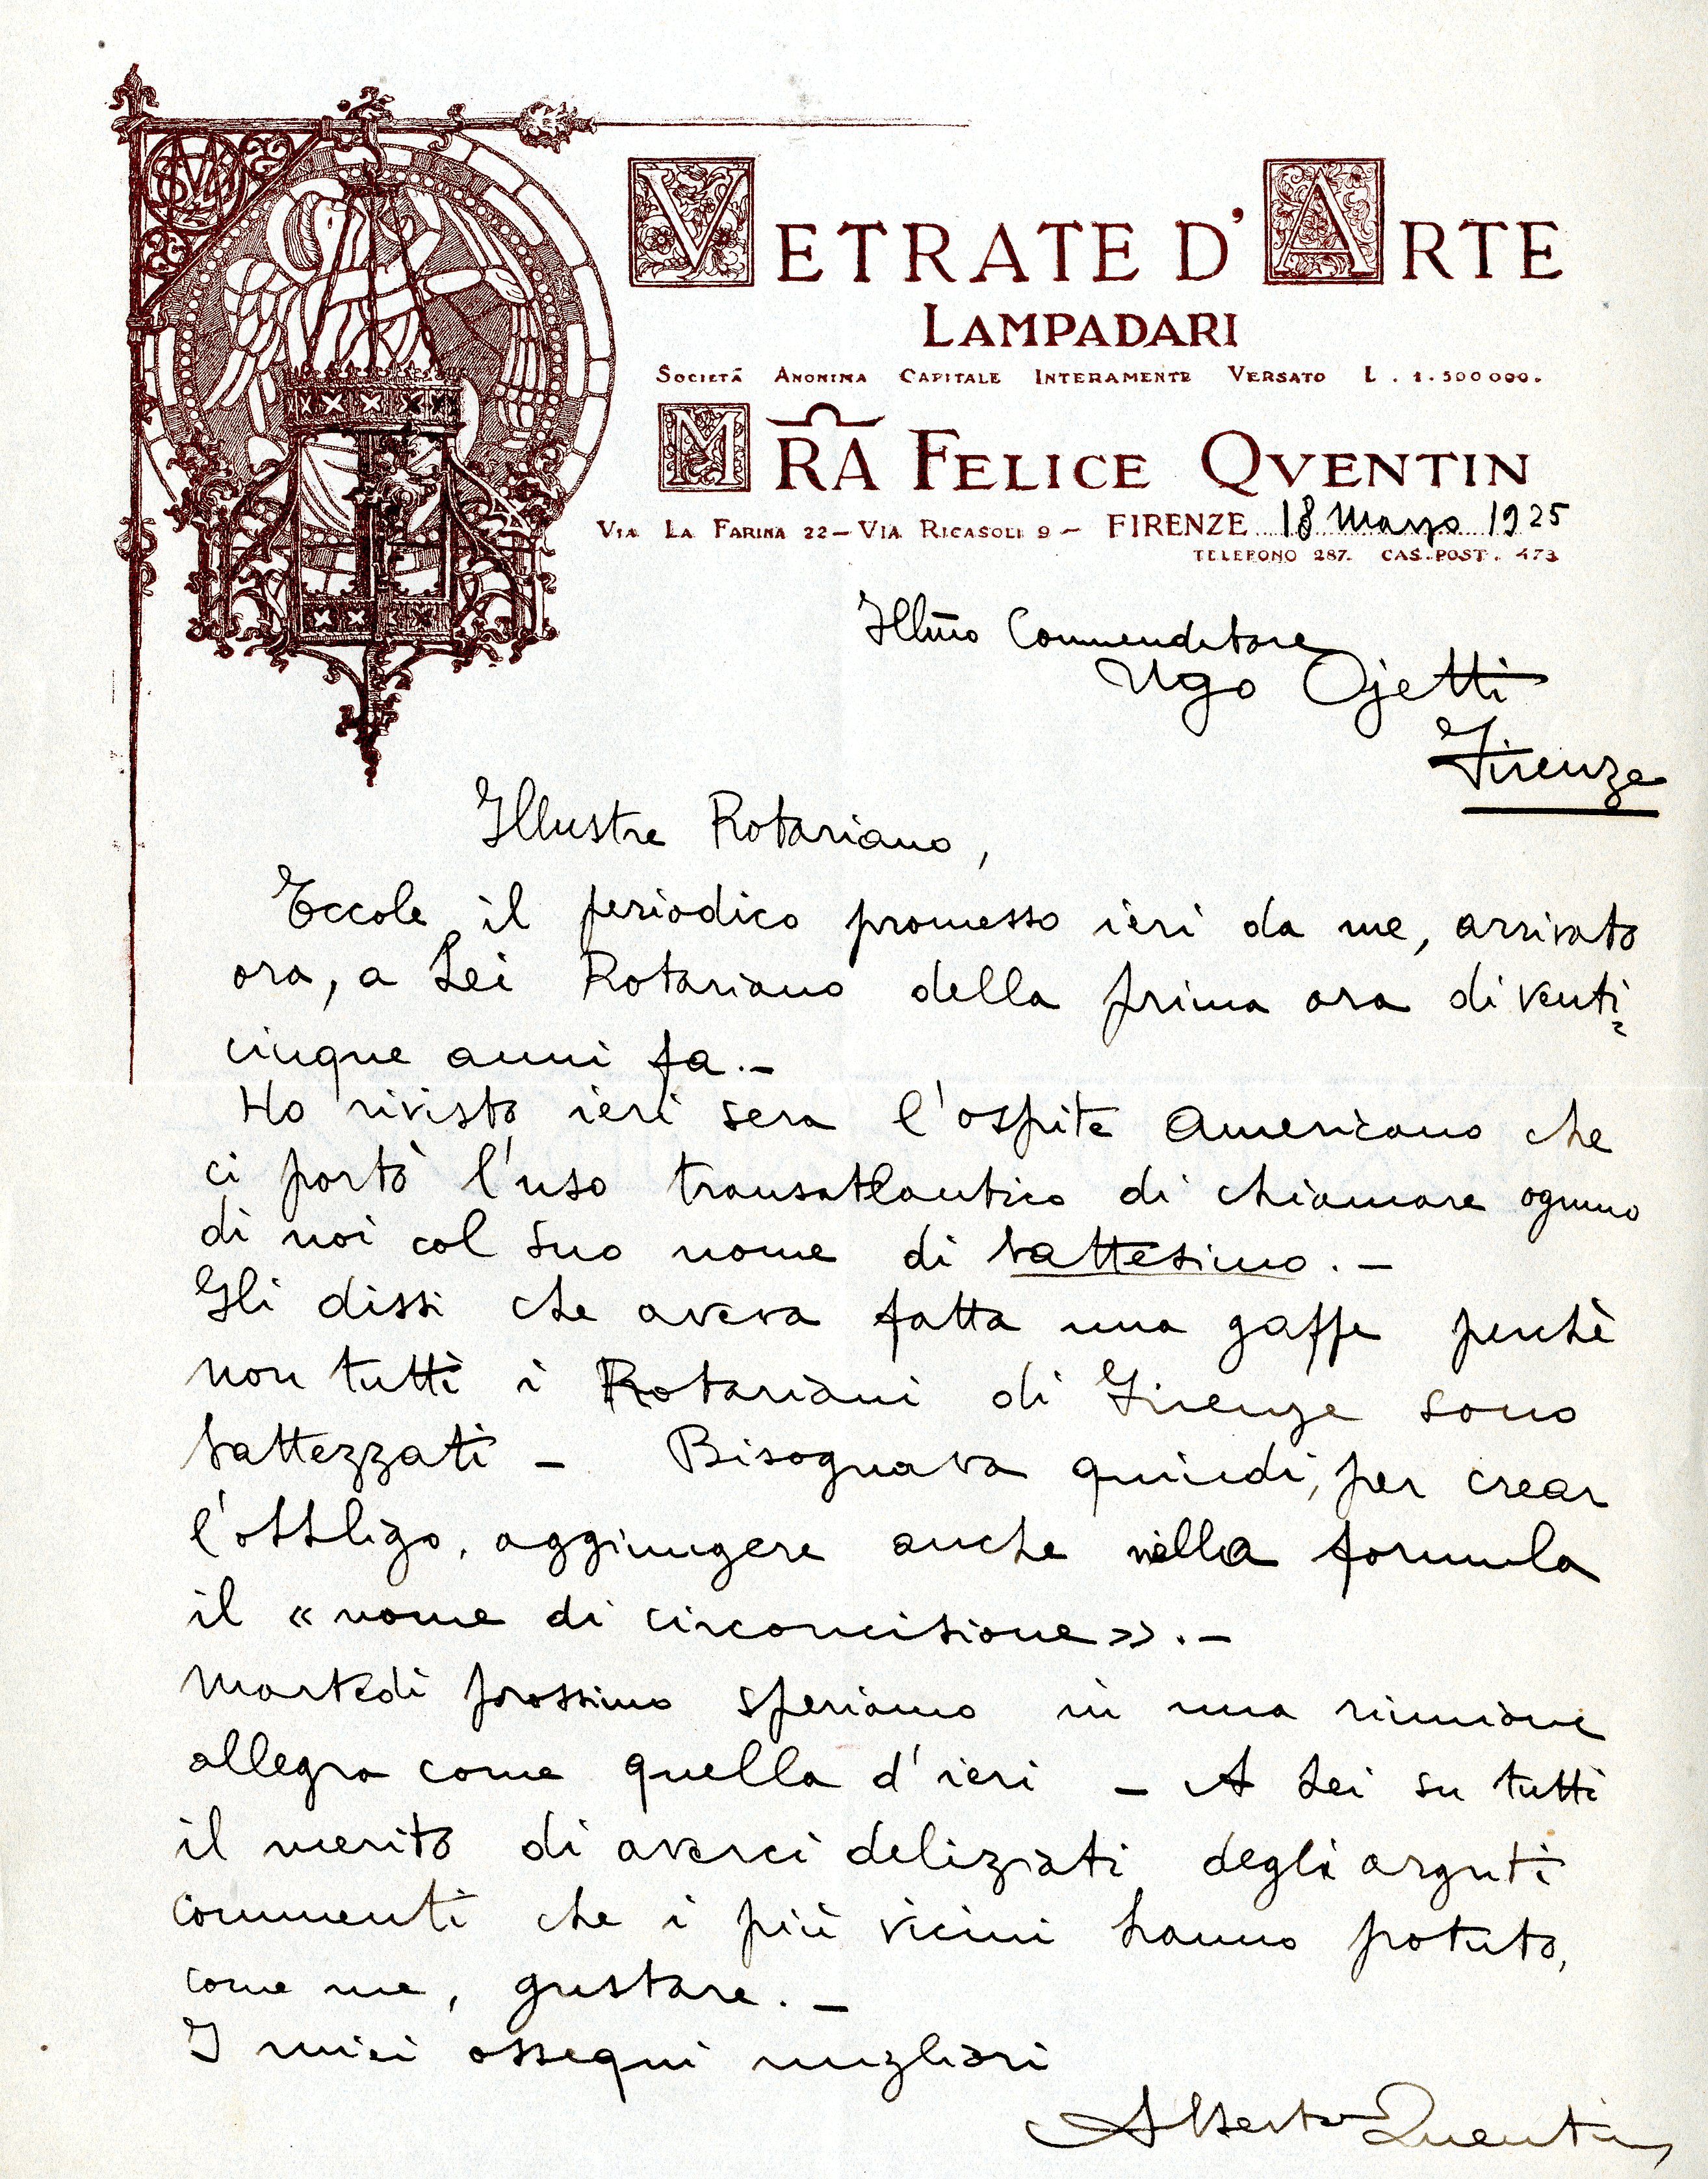 VETRATE D'ARTE
LAMPADARI
SOCIETÀ ANONIMA CAPITALE INTERAMENTE VERSATO L. 1.500000.
MRA FELICE QVENTIN
VIA LA FARINA 22 – VIA RICASOLI 9 – FIRENZE 18 Marzo 1925
TELEFONO 287. CAS. POST. 473
Illmo Commendatore
Ugo Ojetti
Firenze
Illustre Rotariano,
Eccole il periodico promesso ieri da me, arrivato
ora, a Lei Rotariano della prima ora di venti=
cinque anni fa.–
Ho rivisto ieri sera l'ospite Americano che
ci portò l'uso transatlantico di chiamare ognuno
di noi col suo nome di battesimo.–
Gli dissi che aveva fatta una gaffe perchè
non tutti i Rotariani di Firenze sono
battezzati – Bisognava quindi, per crear
l'obbligo, aggiungere anche nella formula
il « nome di circoncisione».–
Martedì prossimo speriamo in una riunione
allegra come quella d'ieri – A Lei su tutti
il merito di averci deliziati degli arguti
commenti che i più vicini hanno potuto,
come me, gustare.–
I miei ossequi migliori
Alberto Quentin